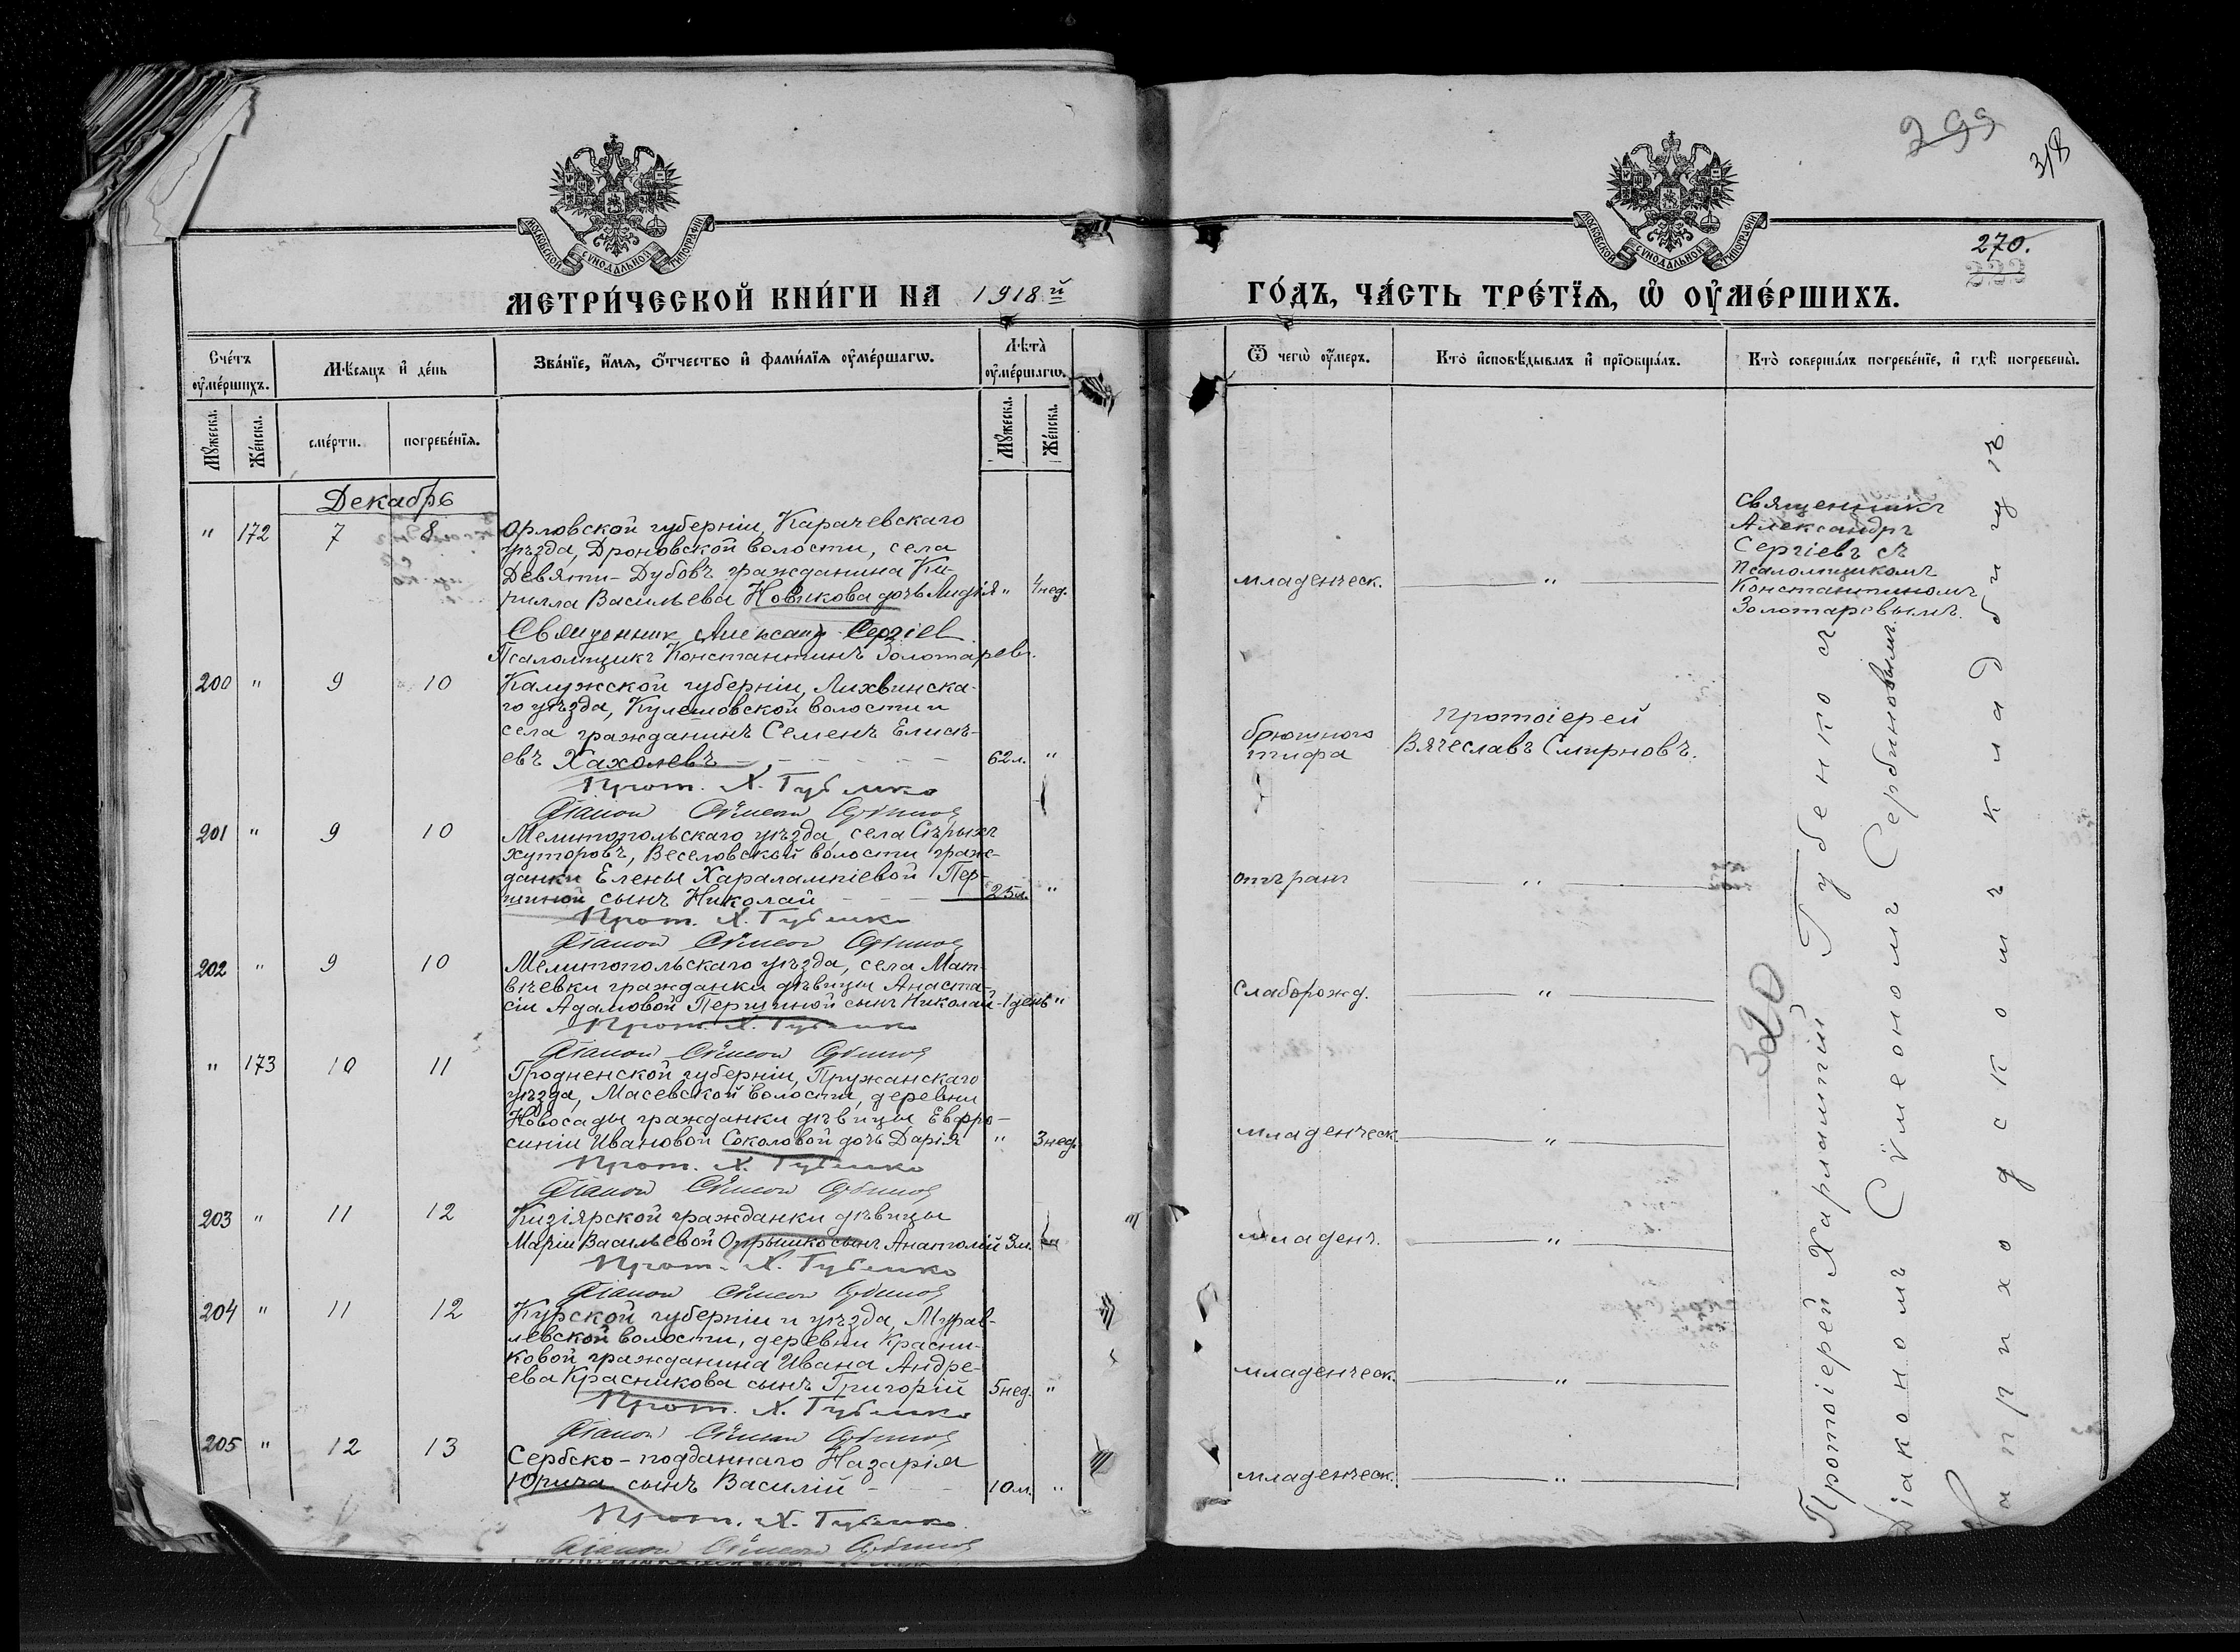 299
318
МОСКОВСКОЙ СѴНОДАЛЬНОЙ ТИПОГРАФІИ
МОСКОВСКОЙ СѴНОДАЛЬНОЙ ТИПОГРАФІИ
270.
МЕТРИ́ЧЕСКОЙ КНИ́ГИ НА 1918й
ГО́ДЪ, ЧА́СТЬ ТРЕ́ТЇѦ, Ѡ҆ ОУ҆МЕ́РШИХЪ.
Сче́тъ оу҆ме́ршихъ.
Мѣ́сяцъ и҆ де́нь
Зва́нїе, и҆́мя, ѻ҆́тчество и҆ фами́лїя оу҆ме́ршагѡ.
Лѣ́та̀ оу҆ме́ршагѡ.
Ѿ чегѡ̀ оу҆́меръ.
Кто̀ и҆сповѣ́дывалъ и҆ прїѡбща́лъ.
Кто̀ соверша́лъ погребе́нїе, и҆ гдѣ̀ погребены̀.
Мꙋ́жеска.
Же́нска.
сме́рти.
погребе́нїя.
Мꙋ́жеска.
Же́нска.
Декабрь
" 172 7 8 Орловской губерніи, Карачевскаго
уѣзда, Дроновской волости, села
Девяти-Дубовъ гражданина Ки-
рилла Васильева Новикова дочь Лидія " 4 нед. младенческ. "
Священникъ
Александръ
Сергіевъ съ
Псаломщикомъ
Константиномъ
Золотаревымъ.
Священник Александ Сергіев
Псаломщикъ Константинъ Золотаревъ.
200 " 9 10 Калужской губерніи, Лихвинска-
го уѣзда, Кулешовской волости и
села гражданинъ Семенъ Елисѣ-
евъ Хахолевъ 62 л. " брюшного тифа Протоіерей Вячеславъ Смирновъ.
Прот. Х. Губенко
Діакон Сѵмеон Сербинов
201 " 9 10 Мелитопольскаго уѣзда, села Сѣрыхъ
хуторовъ, Веселовской волости граж-
данки Елены Харалампіевой Пер-
шиной сынъ Николай 25 л. " отъ ранъ "
Прот. Х. Губенко
Діакон Сѵмеон Сербинов
202 " 9 10 Мелитопольскаго уѣзда, села Мат-
вѣевки гражданки дѣвицы Анаста-
сіи Адамовой Першиной сынъ Николай - 1 день " Слаборожд. "
Прот. Х. Губенко
Діакон Сѵмеон Сербинов
" 173 10 11 Гродненской губерніи, Пружанскаго
уѣзда, Масевской волости, деревни
Новосады гражданки дѣвицы Евфро-
синіи Ивановой Соколовой дочь Дарія " 3 нед. младенческ "
Прот. Х. Губенко
Діакон Сѵмеон Сербинов
203 " 11 12 Кизіярской гражданки дѣвицы
Маріи Васильевой Опрышко сынъ Анатолій 3 м. младенч. "
Прот. Х. Губенко
Діакон Сѵмеон Сербинов
204 " 11 12 Курской губерніи и уѣзда, Мурав-
левской волости, деревни Красни-
ковой гражданина Ивана Андре-
ева Красникова сынъ Григорій 5 нед. " младенческ. "
Прот. Х. Губенко
Діакон Сѵмеон Сербинов
205 " 12 13 Сербско-подданнаго Назарія
Юрича сынъ Василій 10 м. " младенческ. "
Прот. Х. Губенко
Діакон Сѵмеон Сербинов
320
Протоіерей Харлампій Губенко съ
Діакономъ Сѵмеономъ Сербиновымъ.
На приходскомъ кладбищѣ.